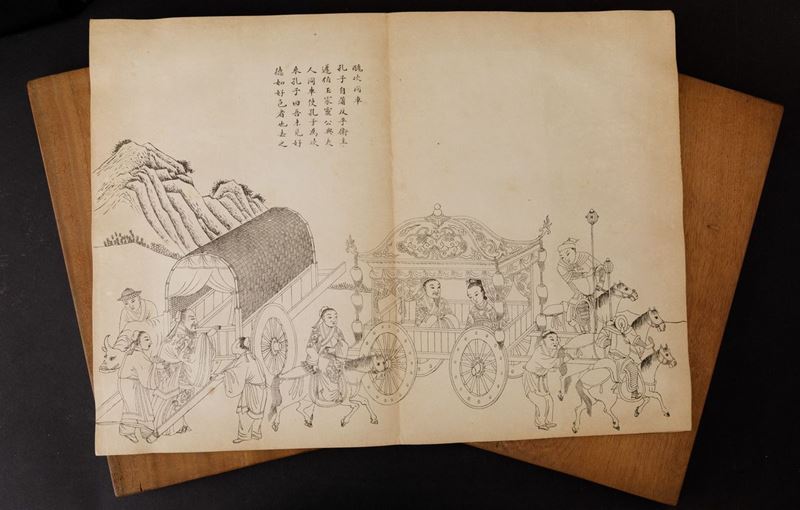 醜次同車
孔子自蒲反乎衛主
蘧伯玉家靈公與夫
人同車使孔子爲次
乘孔子曰吾未見好
德如好色者也去之